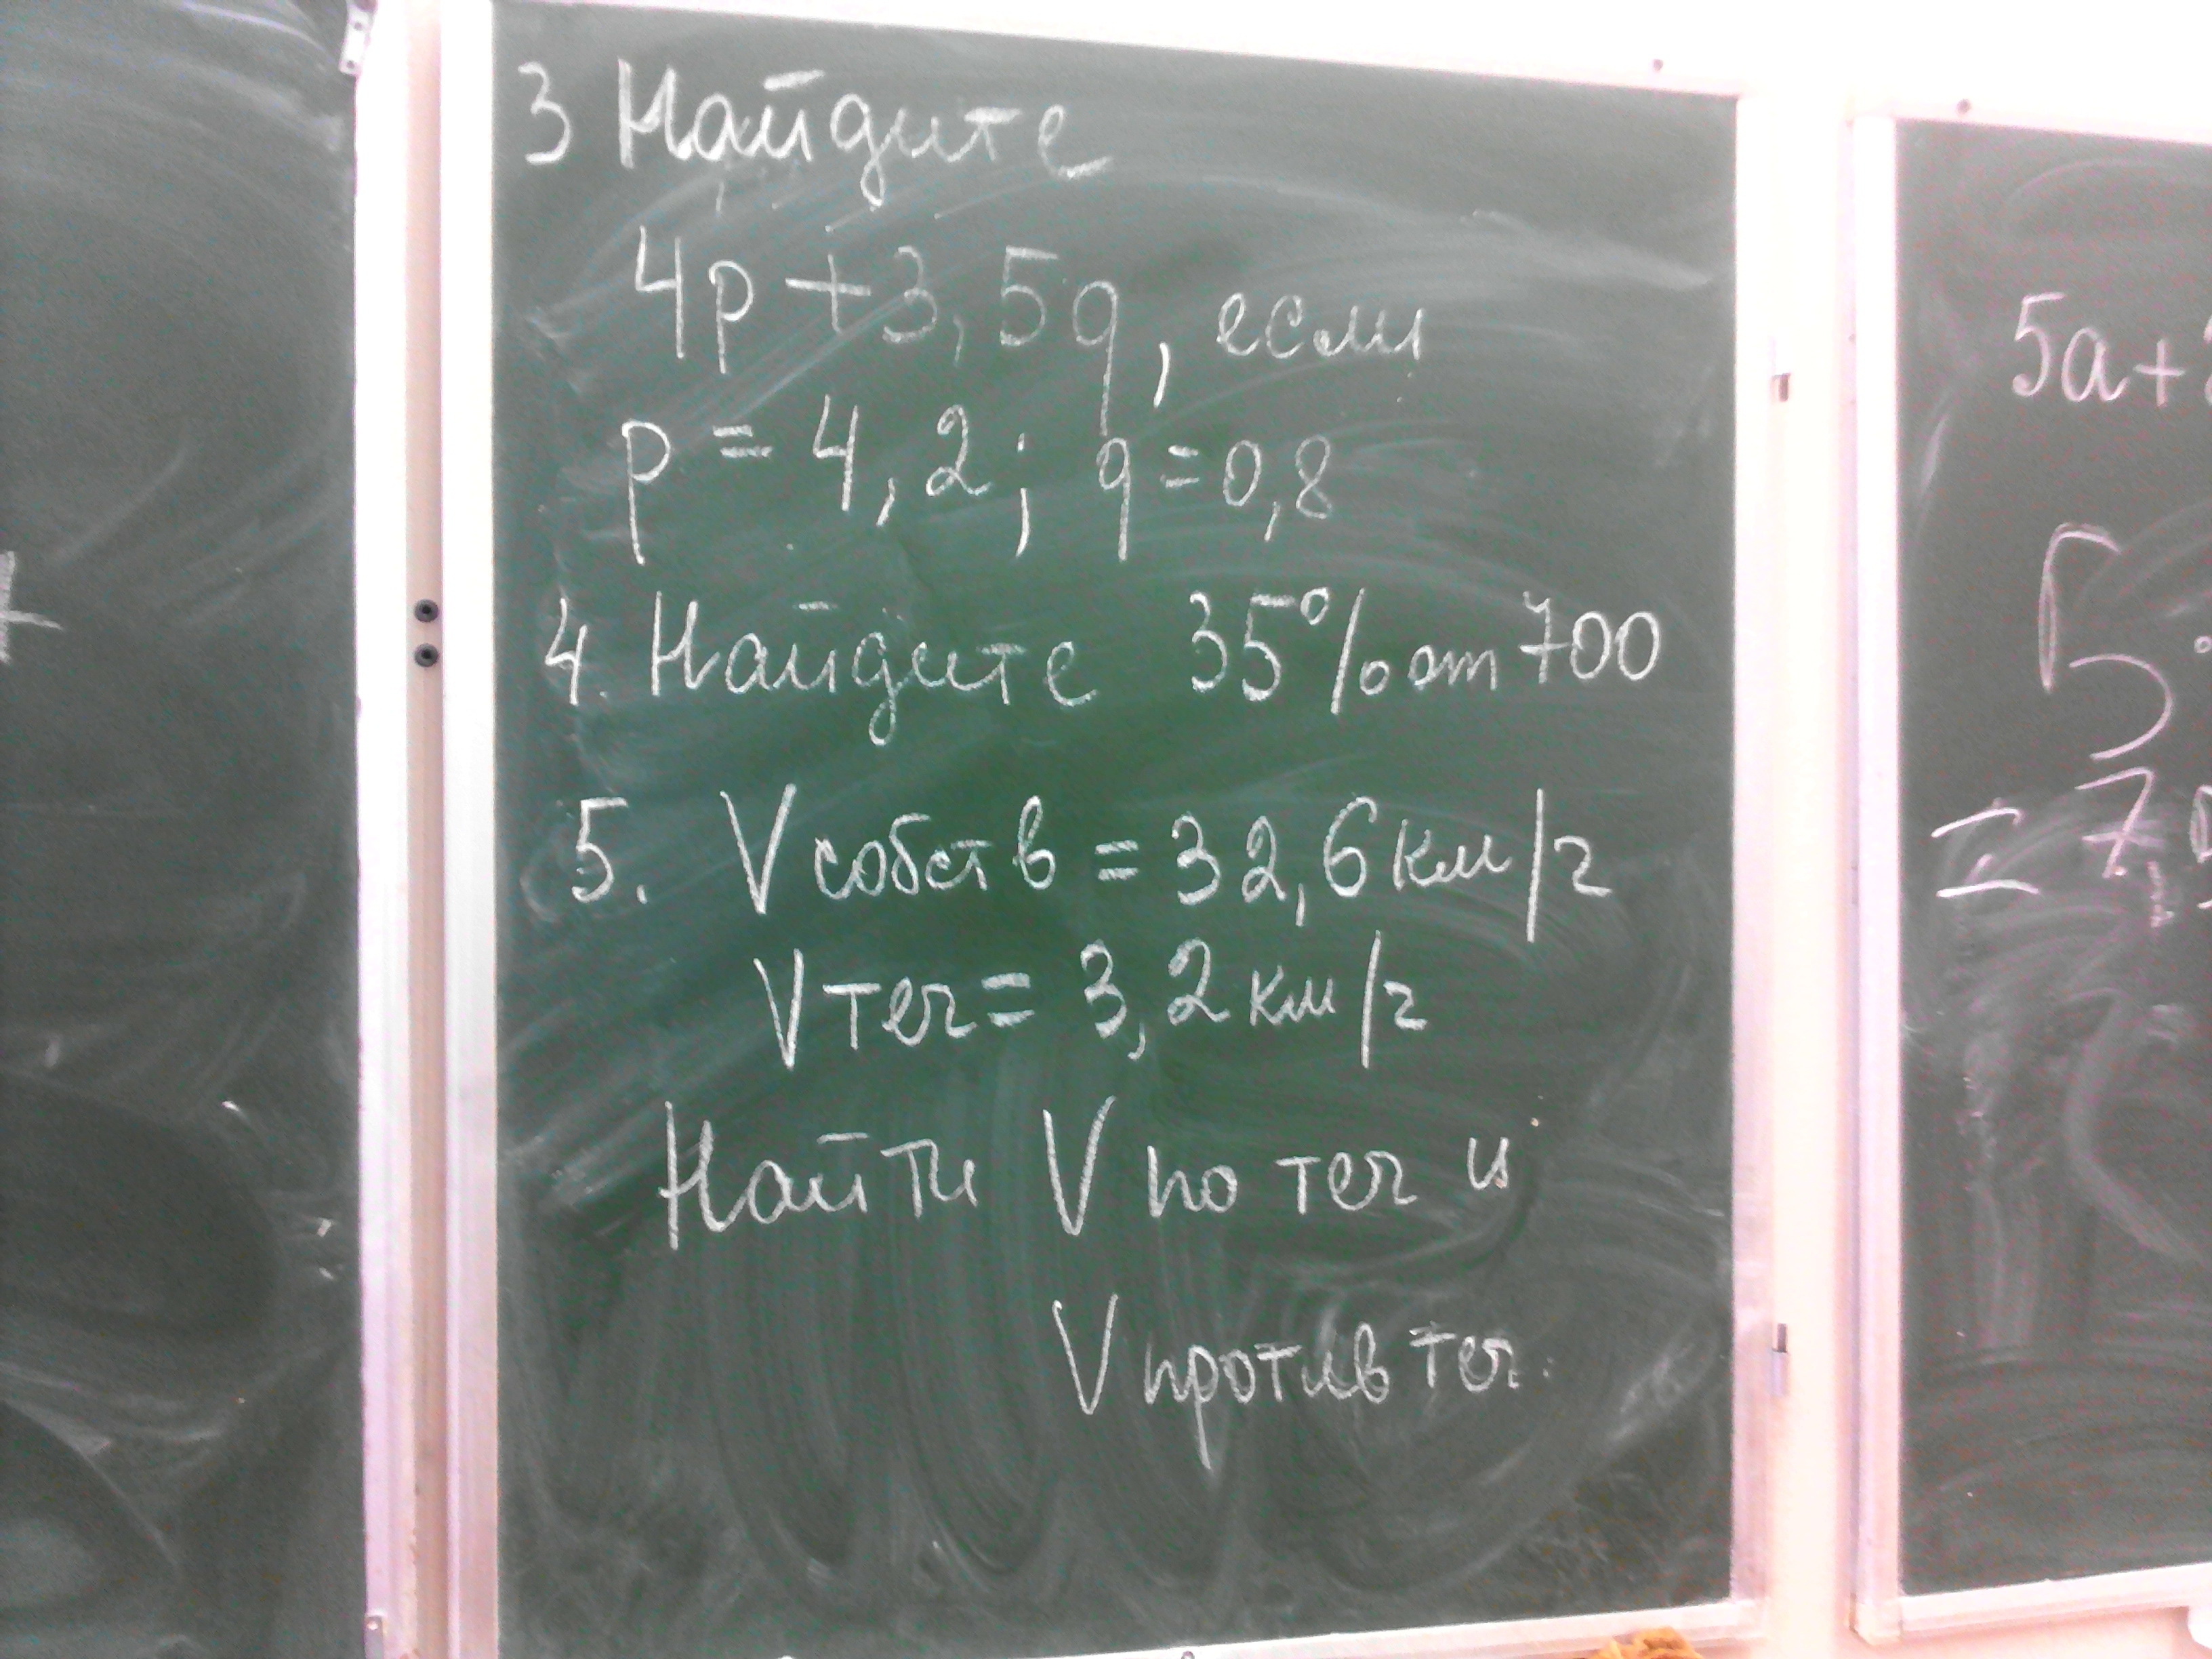 3 Найдите
4p+3,5q, если
p = 4,2; q=0,8
4. Найдите 35% от 700
5. V собств = 32,6 км/ч
V теч = 3,2 км/ч
Найти V по теч и
V против теч.
5a+